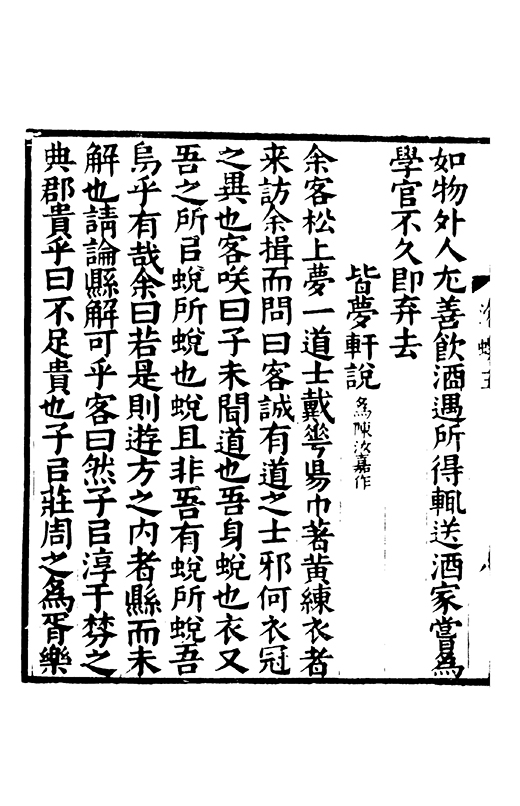 如物外人尢善飲酒遇所得輒送酒家嘗為
學官不久即弃去
皆夢軒說為陳汝嘉作
余客松上夢一道士戴華陽巾著黄練衣者
来訪余揖而問曰客誠有道之士邪何衣冠
之異也客咲曰子未聞道也吾身蛻也衣又
吾之所㠯蛻所蛻也蛻且非吾有蛻所蛻吾
烏乎有哉余曰若是則逰方之内者縣而未
解也請論縣解可乎客曰然子㠯淳于棼之
典郡貴乎曰不足貴也子㠯莊周之為胥樂